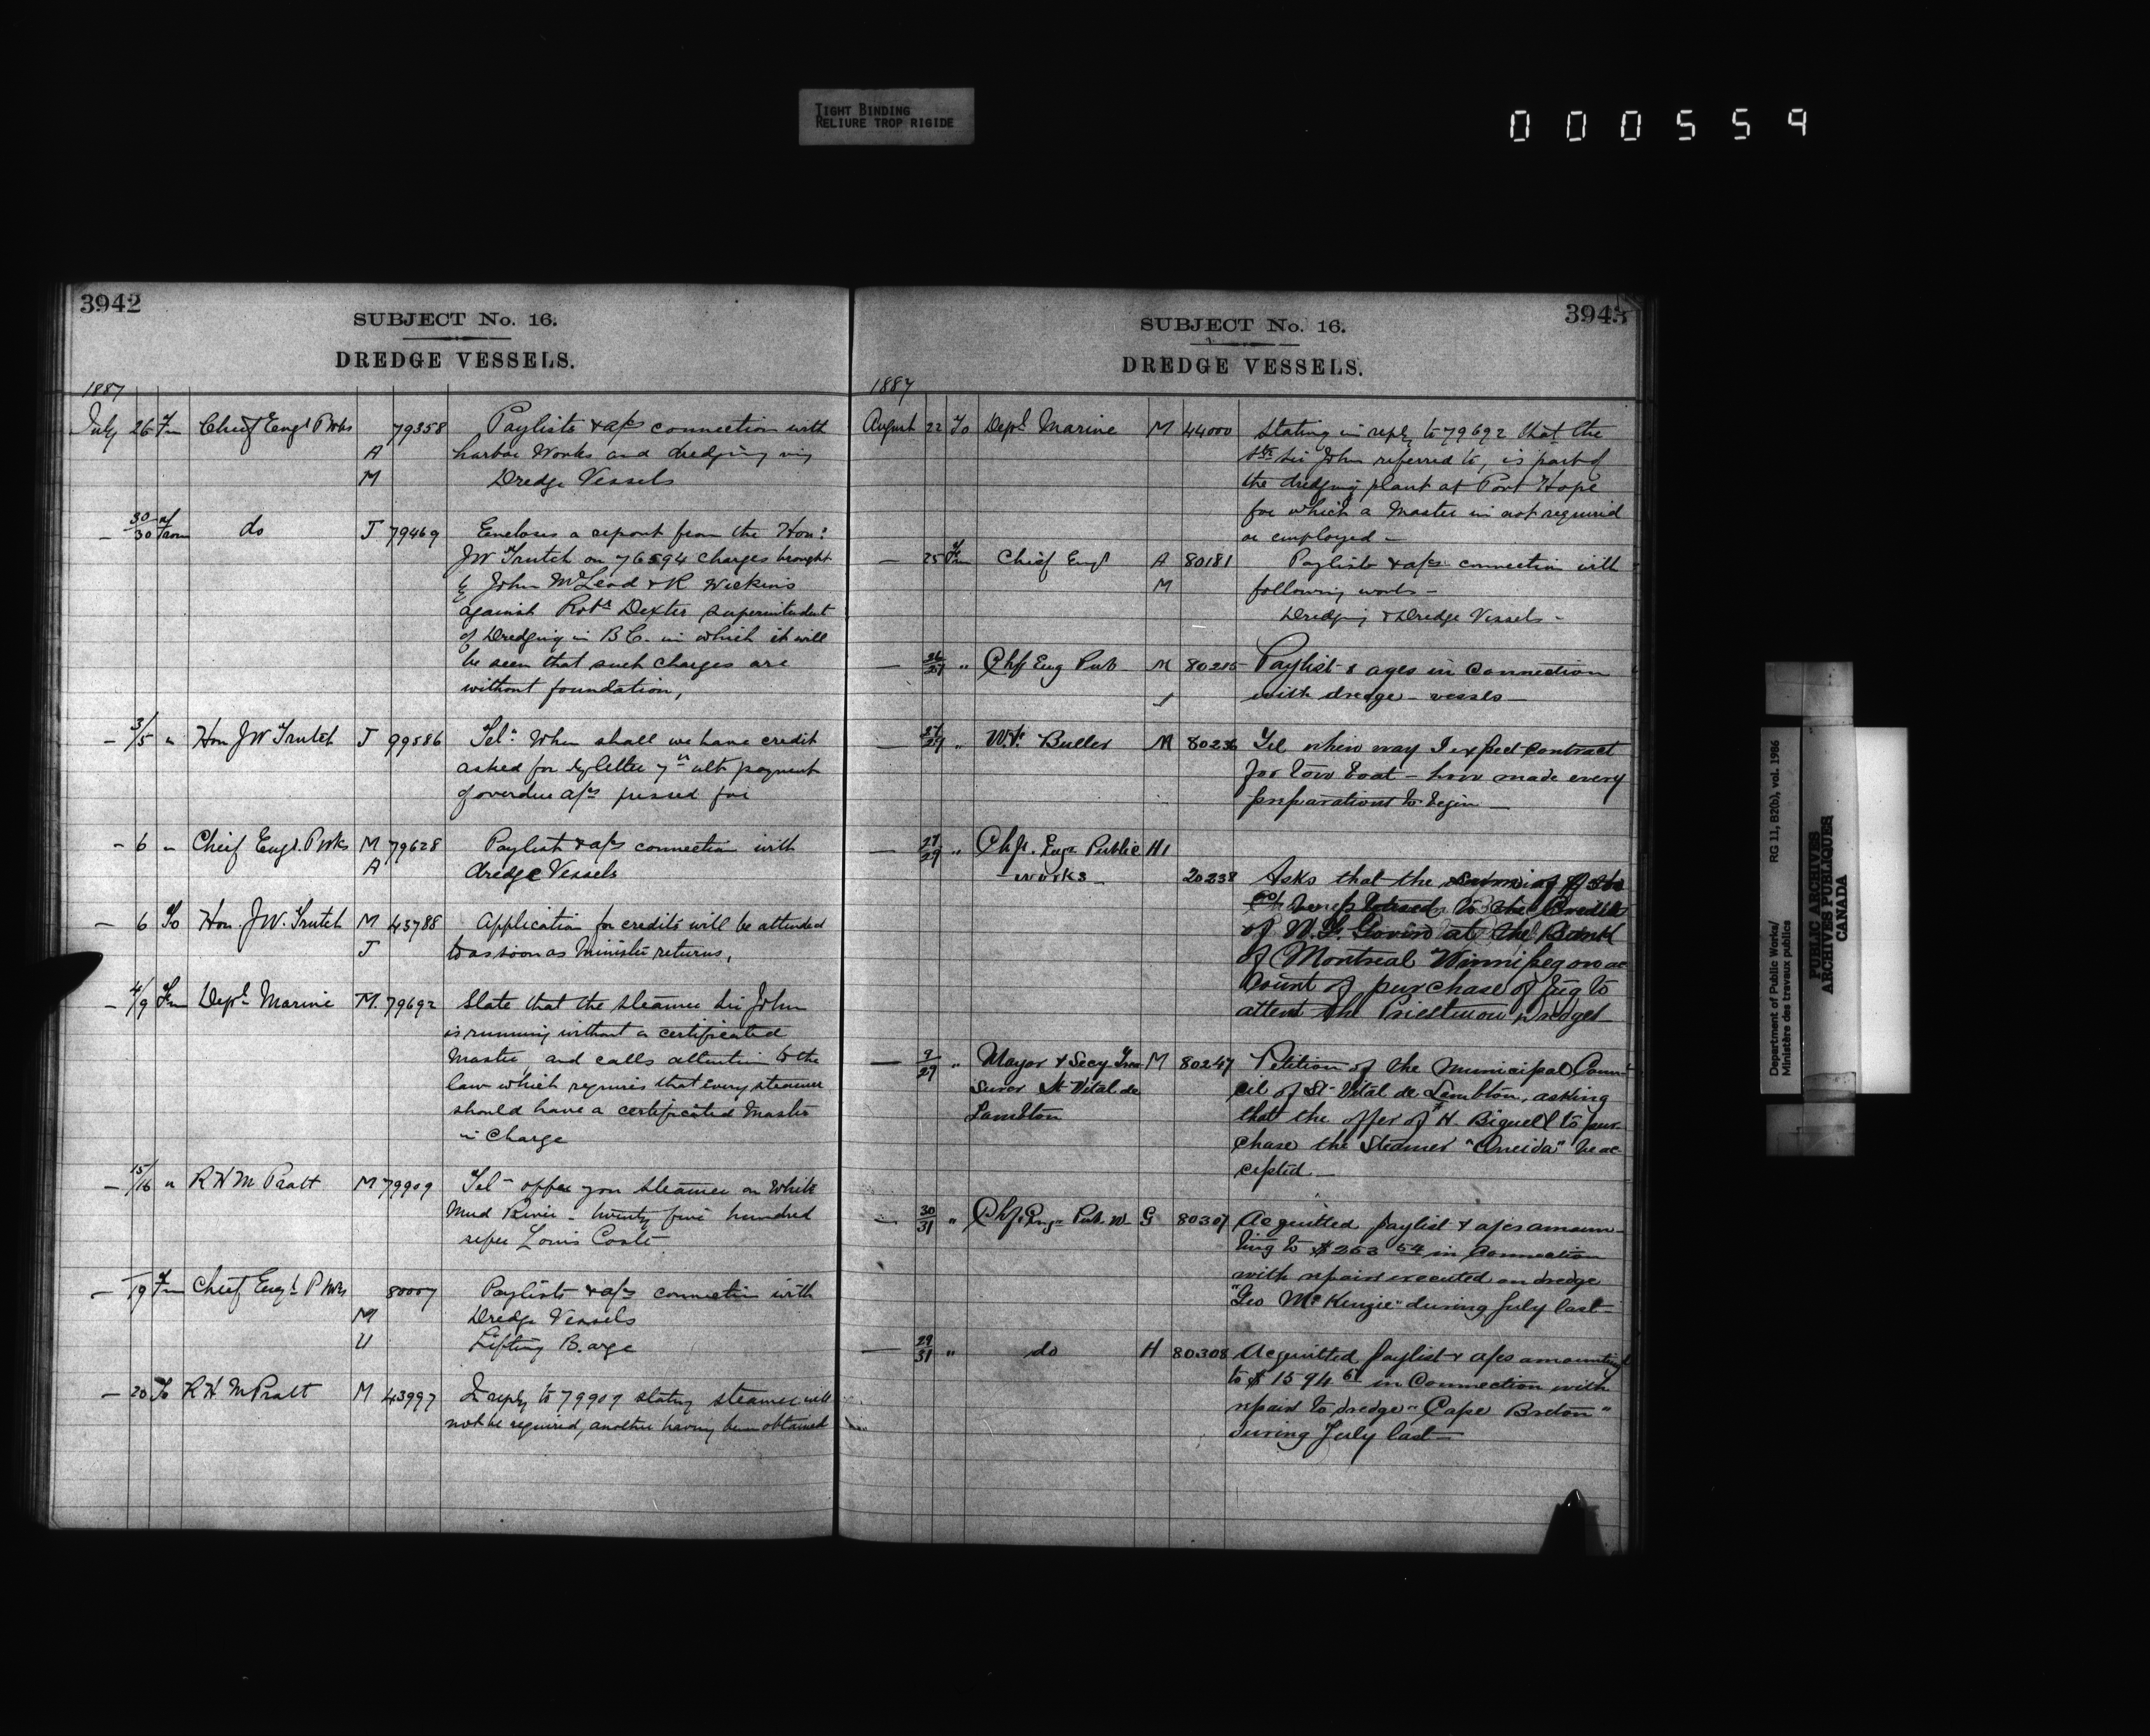 TIGHT BINDING
RELIURE TROP RIGIDE
000559
3942
SUBJECT No. 16.
DREDGE VESSELS.
1887
July 26 Fm Chief Engr P Wks 79358 Paylists & a/cs connection with
A harbor Works and dredging viz
M Dredge Vessels
— 30/30 From do J 79469 Encloses a report from the Hon:
JW Trutch on 76594 charges brought
by John McLeod & R Wickins
against Robt Dexter Superintendent
of Dredging in B.C. in which it will
be seen that such charges are
without foundation,
— 3/5 " Hon JW Trutch J 79586 Tel: When shall we have credit
asked for by letter 7th ult payment
of overdue a/cs pressed for
— 6 " Chief Engr. P Wks M 79628 Paylist & a/cs connection with
A dredge Vessels
— 6 To Hon. J W. Trutch M 43788 Application for credits will be attended
J to as soon as Minister returns,
— 4/9 Fm Dept Marine M. 79692 State that the steamer Sir John
is running without a certificated
Master, and calls attention to the
law which requires that every steamer
should have a certificated Master
in charge
— 15/16 " R H M Pratt M 79909 Tel– offer you steamer on White
Mud River – twenty five hundred
refer Louis Coste
— 19 Fm Chief Engr P Wks 80007 Paylists & a/cs connection with
M Dredge Vessels
U Lifting Barge
— 20 To R H M Pratt M 43997 In reply to 79909 stating steamer will
not be required, another having been obtained
3943
SUBJECT No. 16.
DREDGE VESSELS.
1887
August 22 To Dept Marine M 44000 Stating in reply to 79692 that the
Str Sir John referred to, is part of
the dredging plant at Port Hope
for which a Master is not required
or employed –
— 25 Fm Chief Engr A 80181 Paylists & a/cs connection with
M following works –
Dredging & Dredge Vessels –
— 26/27 " Chf Eng Pub M 80215 Paylist & a/ces in connection
with dredge – vessls –
— 27/29 " Buller M 80236 Tel when may I expect contract
for tow boat – have made every
preparations to begin –
— 27/29 " Chf. Engr Public H1
Works 20238 Asks that the sum of
be placed to the Credit
of at the Bank
of Montreal Winnipeg on ac
count of purchase of tug to
attend the Priestman Dredge
— 9/29 " Mayor & Secy Trea M 80247 Petition of the Municipal Coun–
surer St Vital de cil of St Vital de Lambton, asking
Lambton that the offer of H. Bignell to pur–
chase the Steamer "Oneida" be ac
cepted –
— 30/31 " Chf. Engr Pub W G 80307 Acquitted paylist & a/cs amoun–
ting to $253 54 in connection
with repairs executed on dredge
"Geo McKenzie" during July last –
— 29/31 " do H 80308 Acquitted paylist & a/cs amounting
to $1594 61 in Connection with
repairs to dredge "Cape Breton"
during July last –
Department of Public Works/
Ministère des travaux publics
RG 11, B2(b), vol. 1986
PUBLIC ARCHIVES
ARCHIVES PUBLIQUES
CANADA